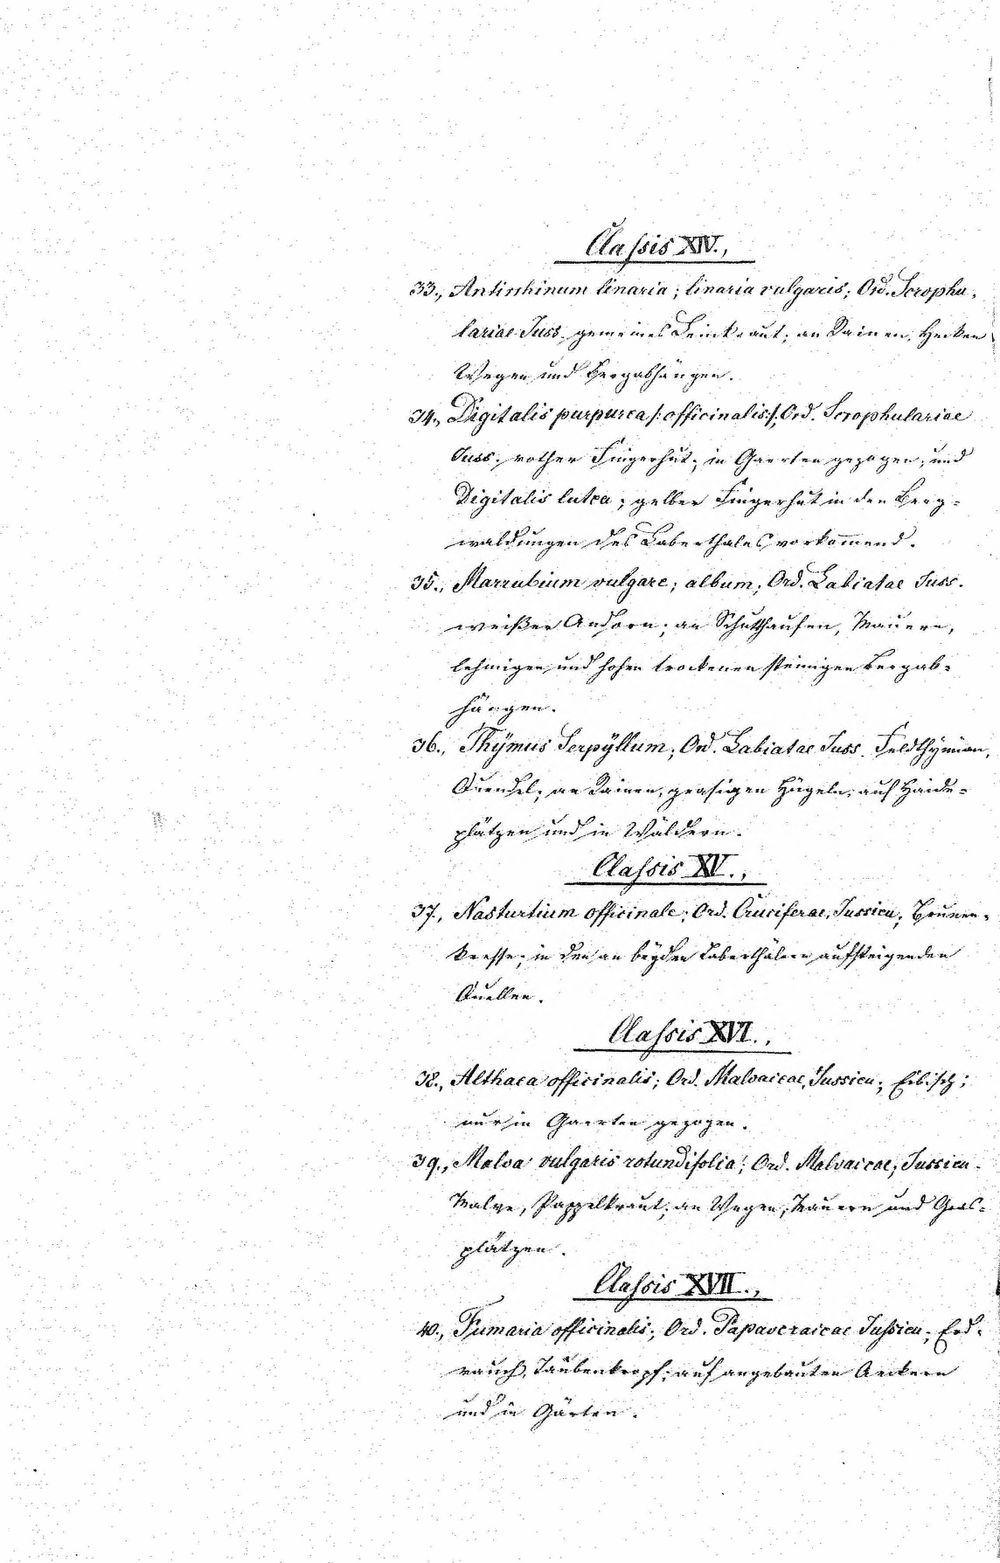 Classis XIV.,
33., Antirrhinum linaria; linaria vulgaris; Ord. Scrophu-
lariae Juss. gemeines Leinkraut; an Rainen, Hecken
Wegen und Bergabhängen.
34., Digitalis purpurea /:officinalis:/, Ord. Scrophulariae
Juss. rother Fingerhut; in Gaerten gezogen; und
Digitalis lutea; gelber Fingerhut in den Berg-
waldungen des Laberthales vorkom̄end.
35., Marrubium vulgare; album; Ord. Labiatae Juss.
weißer Andorn; an Schutthaufen, Mauern,
lehmigen und hohen trockenen steinigen Bergab-
hängen.
36., Thÿmus Serpÿllum; Ord. Labiatae Juss. Feldthÿmian,
Quendel; an Rainen, grasigen Hügeln; auf Haide-
plätzen und in Wäldern.
Classis XV.,
37., Nasturtium officinale; Ord. Cruciferae, Jussieu; Brunen-
kresse; in den an beÿden Laberthälern aufsteigenden
Quellen.
Classis XVI.,
38., Althaea officinalis; Ord. Malvaceae, Jussieu; Eibisch;
nur in Gaerten gezogen.
39., Malva vulgaris rotundifolia; Ord. Malvaceae; Jussieu.
Malve, Pappelkraut; an Wegen, Mauern und Gras-
plätzen.
Classis XVII.,
40., Fumaria officinalis; Ord. Papaveraceae Jussieu; Erd-
rauch, Taubenkropf; auf angebauten Aeckern
und in Gärten.